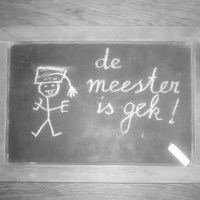 de
meester
is gek!